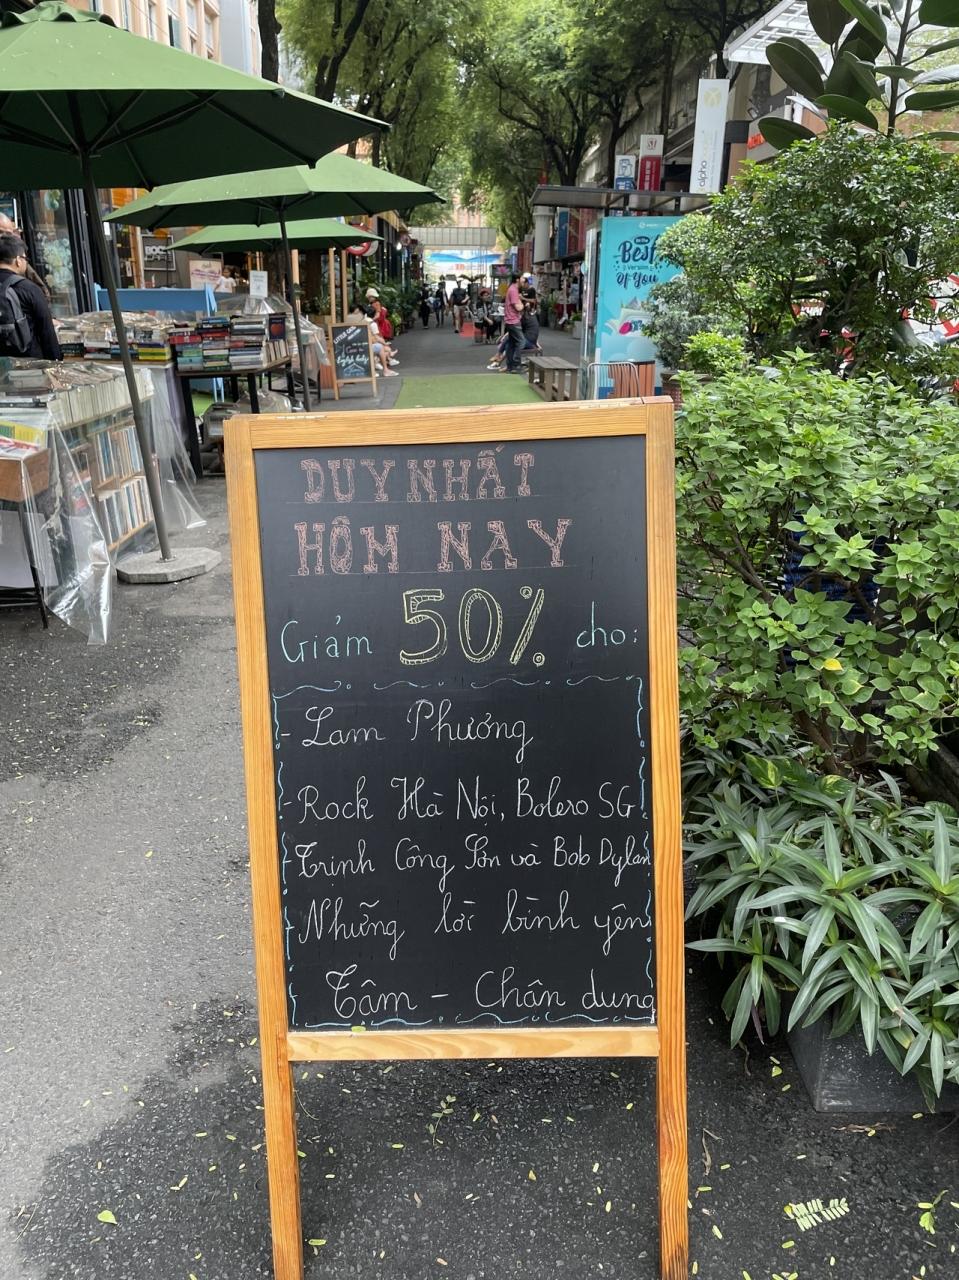 DUY NHẤT
HÔM NAY
Giảm 50% cho:
- Lam Phương
- Rock Hà Nội, Bolero SG
- Trịnh Công Sơn và Bob Dylan
- Những lời bình yên
Tâm - Chân dung
Best
Version
of You
alpha